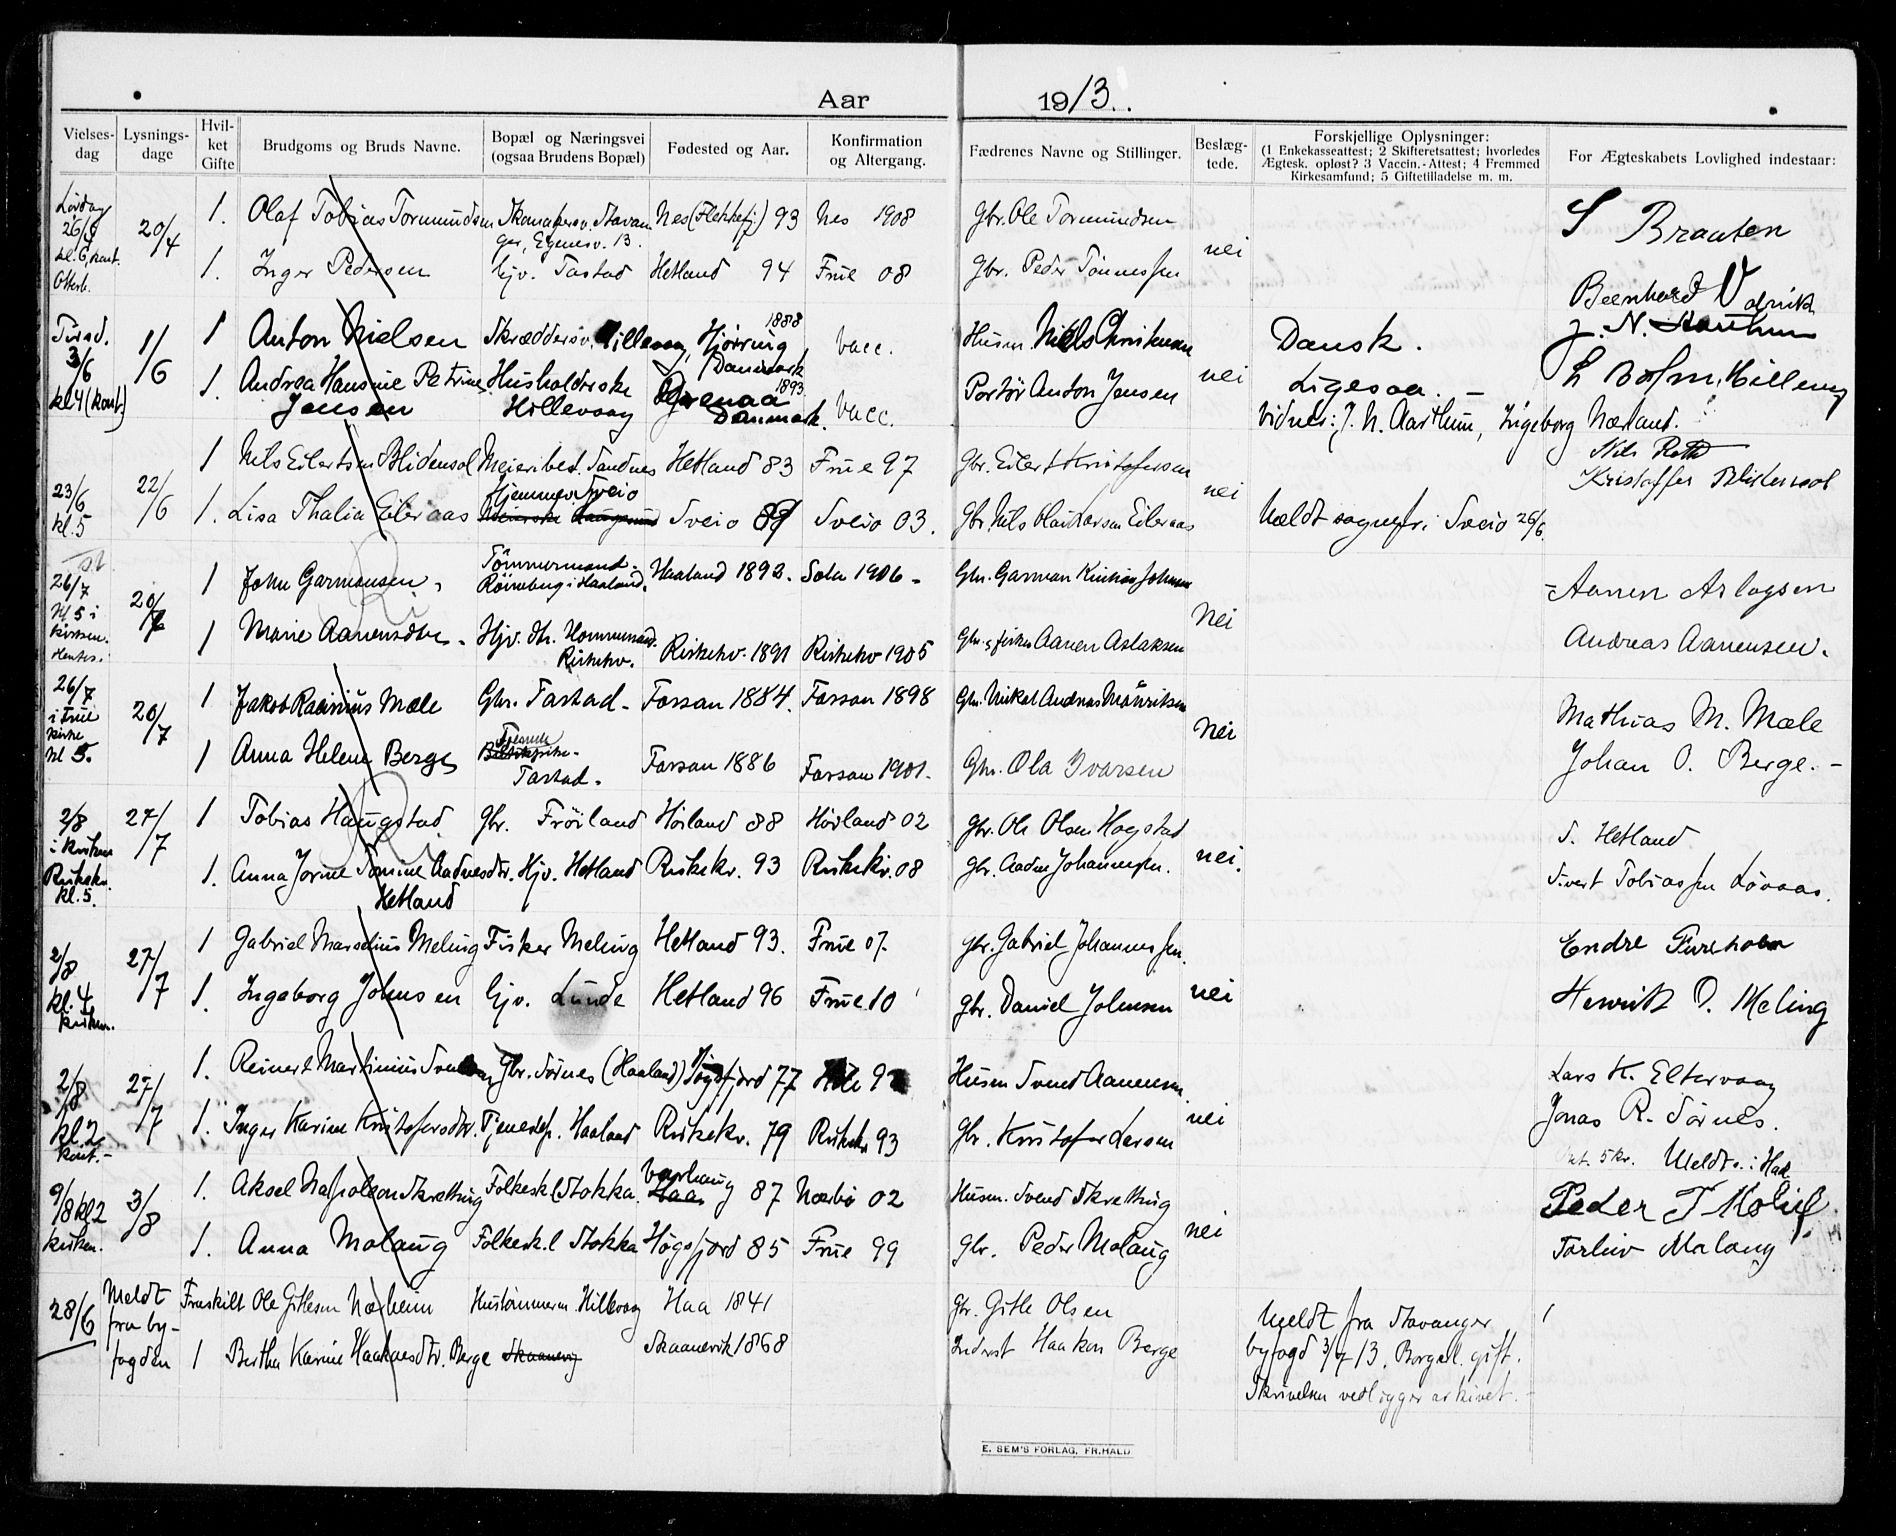 Aar 1913.
Vielses-dag
Lysnings-dage
Hvil-ket Gifte
Brudgoms og Bruds Navne.
Bopæl og Næringsvei (ogsaa Brudens Bopæl)
Fødested og Aar.
Konfirmation og Altergang.
Fædrenes Navne og Stillinger.
Beslæg-tede.
Forskjellige Oplysninger: (1 Enkekasseattest; 2 Skifteretsattest; hvorledes Ægtesk. opløst? 3 Vaccin.-Attest; 4 Fremmed Kirkesamfund; 5 Giftetilladelse m. m.
For Ægteskabets Lovlighed indestaar:
Lørdag 26/4 kl. 6, kont. 20/4 1. Olaf Tobias Tormundsen Stavanger, Egenesv. 13. Nes (Flekkefj) 93 Nes 1908 Gbr. Ole Tormundsen nei S Braaten
1. Inger Pedersen Hjv. Tastad Hetland 94 Frue 08 Gbr. Peder Tønnessen Bernhard
Tirsd. 3/6 kl 4 (kont.) 1/6 1 Anton Nielsen Skræddersv. Hillevaag Hjørring Danmark 1888 Vacc. Husm. Niels Christensen nei Dansk. J. N. Aarthun
1. Andrea Hansine Petrine Jensen Husholderske Hillevaag Grenaa Danmark. 1893 Vacc. Portør Anton Jensen Ligesaa. -
Vidner: J. N. Aarthun, Ingeborg Nærland.
23/6 kl. 5 22/6 1 Nils Eilertsen Blidensol Meieribest. Sandnes Hetland 83 Frue 97 Gbr. Eilert Kristofersen nei Nils Roth
1. Lisa Thalia Eileraas Hjemmev. Sveio Sveio 89 Sveio 03. Gbr. Nils Olai Larsen Eileraas Meldt sognepr. i Sveio 26/6. Kristoffer Blidensol
26/7 Kl 5 i kirken. 20/7 1 John Garmansen. Tömmermand. Röineberg i Haaland. Haaland 1892. Sola 1906 - Gbr. Garman Kristian Johnsen Nei - Aanen Aslagsen
1 Marie Aanensdtr. Hjv. dtr. Hommersand. Riskekv. Riskekv. 1891 Riskekv 1905 Gbr. & fisker Aanen Aslaksen Andreas Aanensen.
26/7 i Frue kirke Kl 5. 20/7 1 Jakob Rasmus Mæle Gbr. Tastad - Fossan 1884. Fossan 1898 Gbr. Mikal Andreas Mauritsen Nei Mathias M. Mæle
1 Anna Helene Berge Tastad. Fossan 1886 Fossan 1901. Gbr. Ola Ivarsen Johan O. Berge. -
2/8 i kirken Riskekv. kl. 5. 27/7 1 Tobias Haugstad Gbr. Fröiland Höiland 88 Höiland 02 Gbr. Ole Olsen Hogstad nei. S. Hetland
1. Anna Jorine Tomine Aadnesdtr. Hetland Hjv. Hetland Riskekv. 93 Riskekv. 08 Gbr. Aadne Johannessen. Sivert Tobiassen Lövaas.
2/8 kl. 4 kirken. 27/7 1 Gabriel Marselius Meling Fisker Meling Hetland 93. Frue 07. Gbr. Gabriel Johannessen. nei Endre
1. Ingeborg Johnsen Hjv. Lunde Hetland 96 Frue 10 Gbr. Daniel Johnsen Henrik D. Meling
2/8 kl. 2 kont. - 27/7 1. Reinert Martinius Svendsen Gbr. Sörnes (Haaland) Högsfjord 77 Hole 92 Husm Svend Aanensen nei Lars K. Eltervaag
1. Inger Karine Kristofersdtr. Tjenestep. Haaland Riskekv. 79 Riskekv 93 Gbr. Kristofer Larsen Jonas R. Sörnes.
5 kr. Meldt i Haal.
9/8 kl 2 kirken. 3/8 1. Aksel Napoleon Skretting Folkesk.l Stokka. Varhaug 87 Nærbö 02 Husm. Svend Skretting nei Peder T
1. Anna Molaug Folkesk.l Stokka Högsfjord 85 Frue 99 Gbr. Peder Molaug Torleiv Molaug
28/6 Meldt fra by-fogden Fraskilt Ole Gitlesen Næsheim Hustömmerm. Hillevaag Haa 1841 Gbr. Gitle Olsen Meldt fra Stavanger byfogd 3/7 13. Borgerl. gift. Skrivelsen vedligger arkivet. -
1 Bertha Karine Haakonsdtr. Berge Skaanevig Skaanevik 1868 Inderst Haakon Berge
E. SEM'S FORLAG, FR.HALD